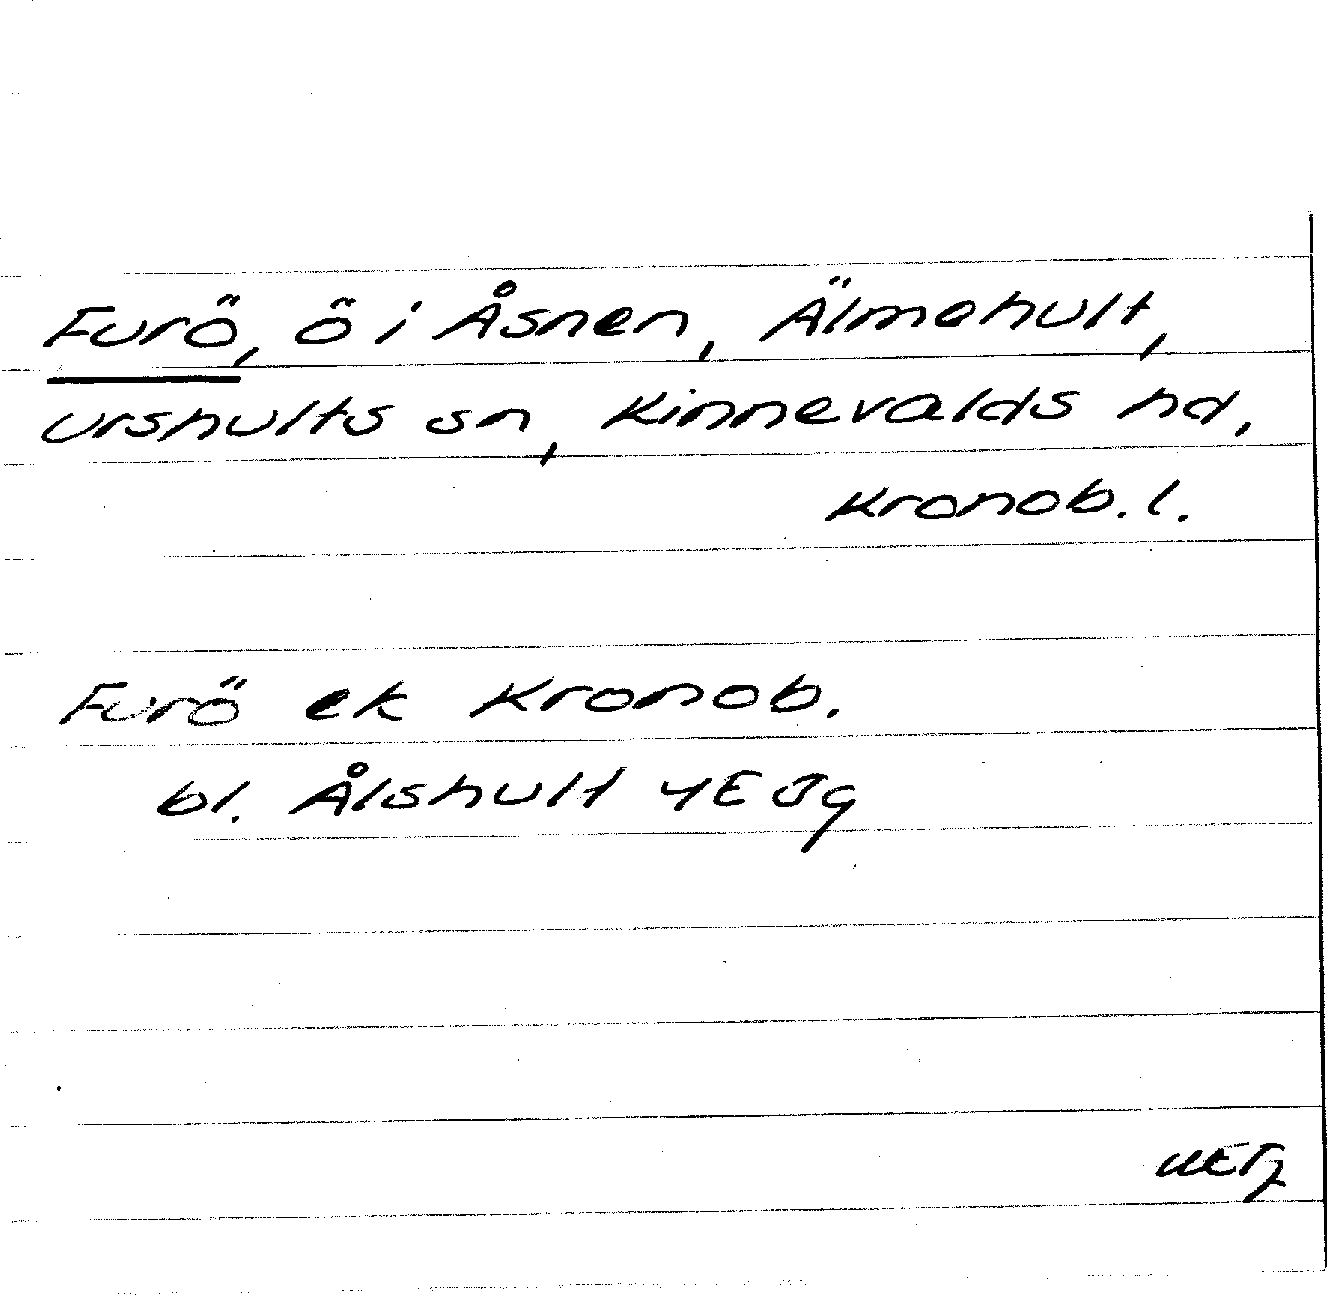 Furö, ö i Åsnen, Älmehult,
Urshults sn, Kinnevalds hd,
Kronob. l.
Furö ek Kronob.
bl. Ålshult 4E